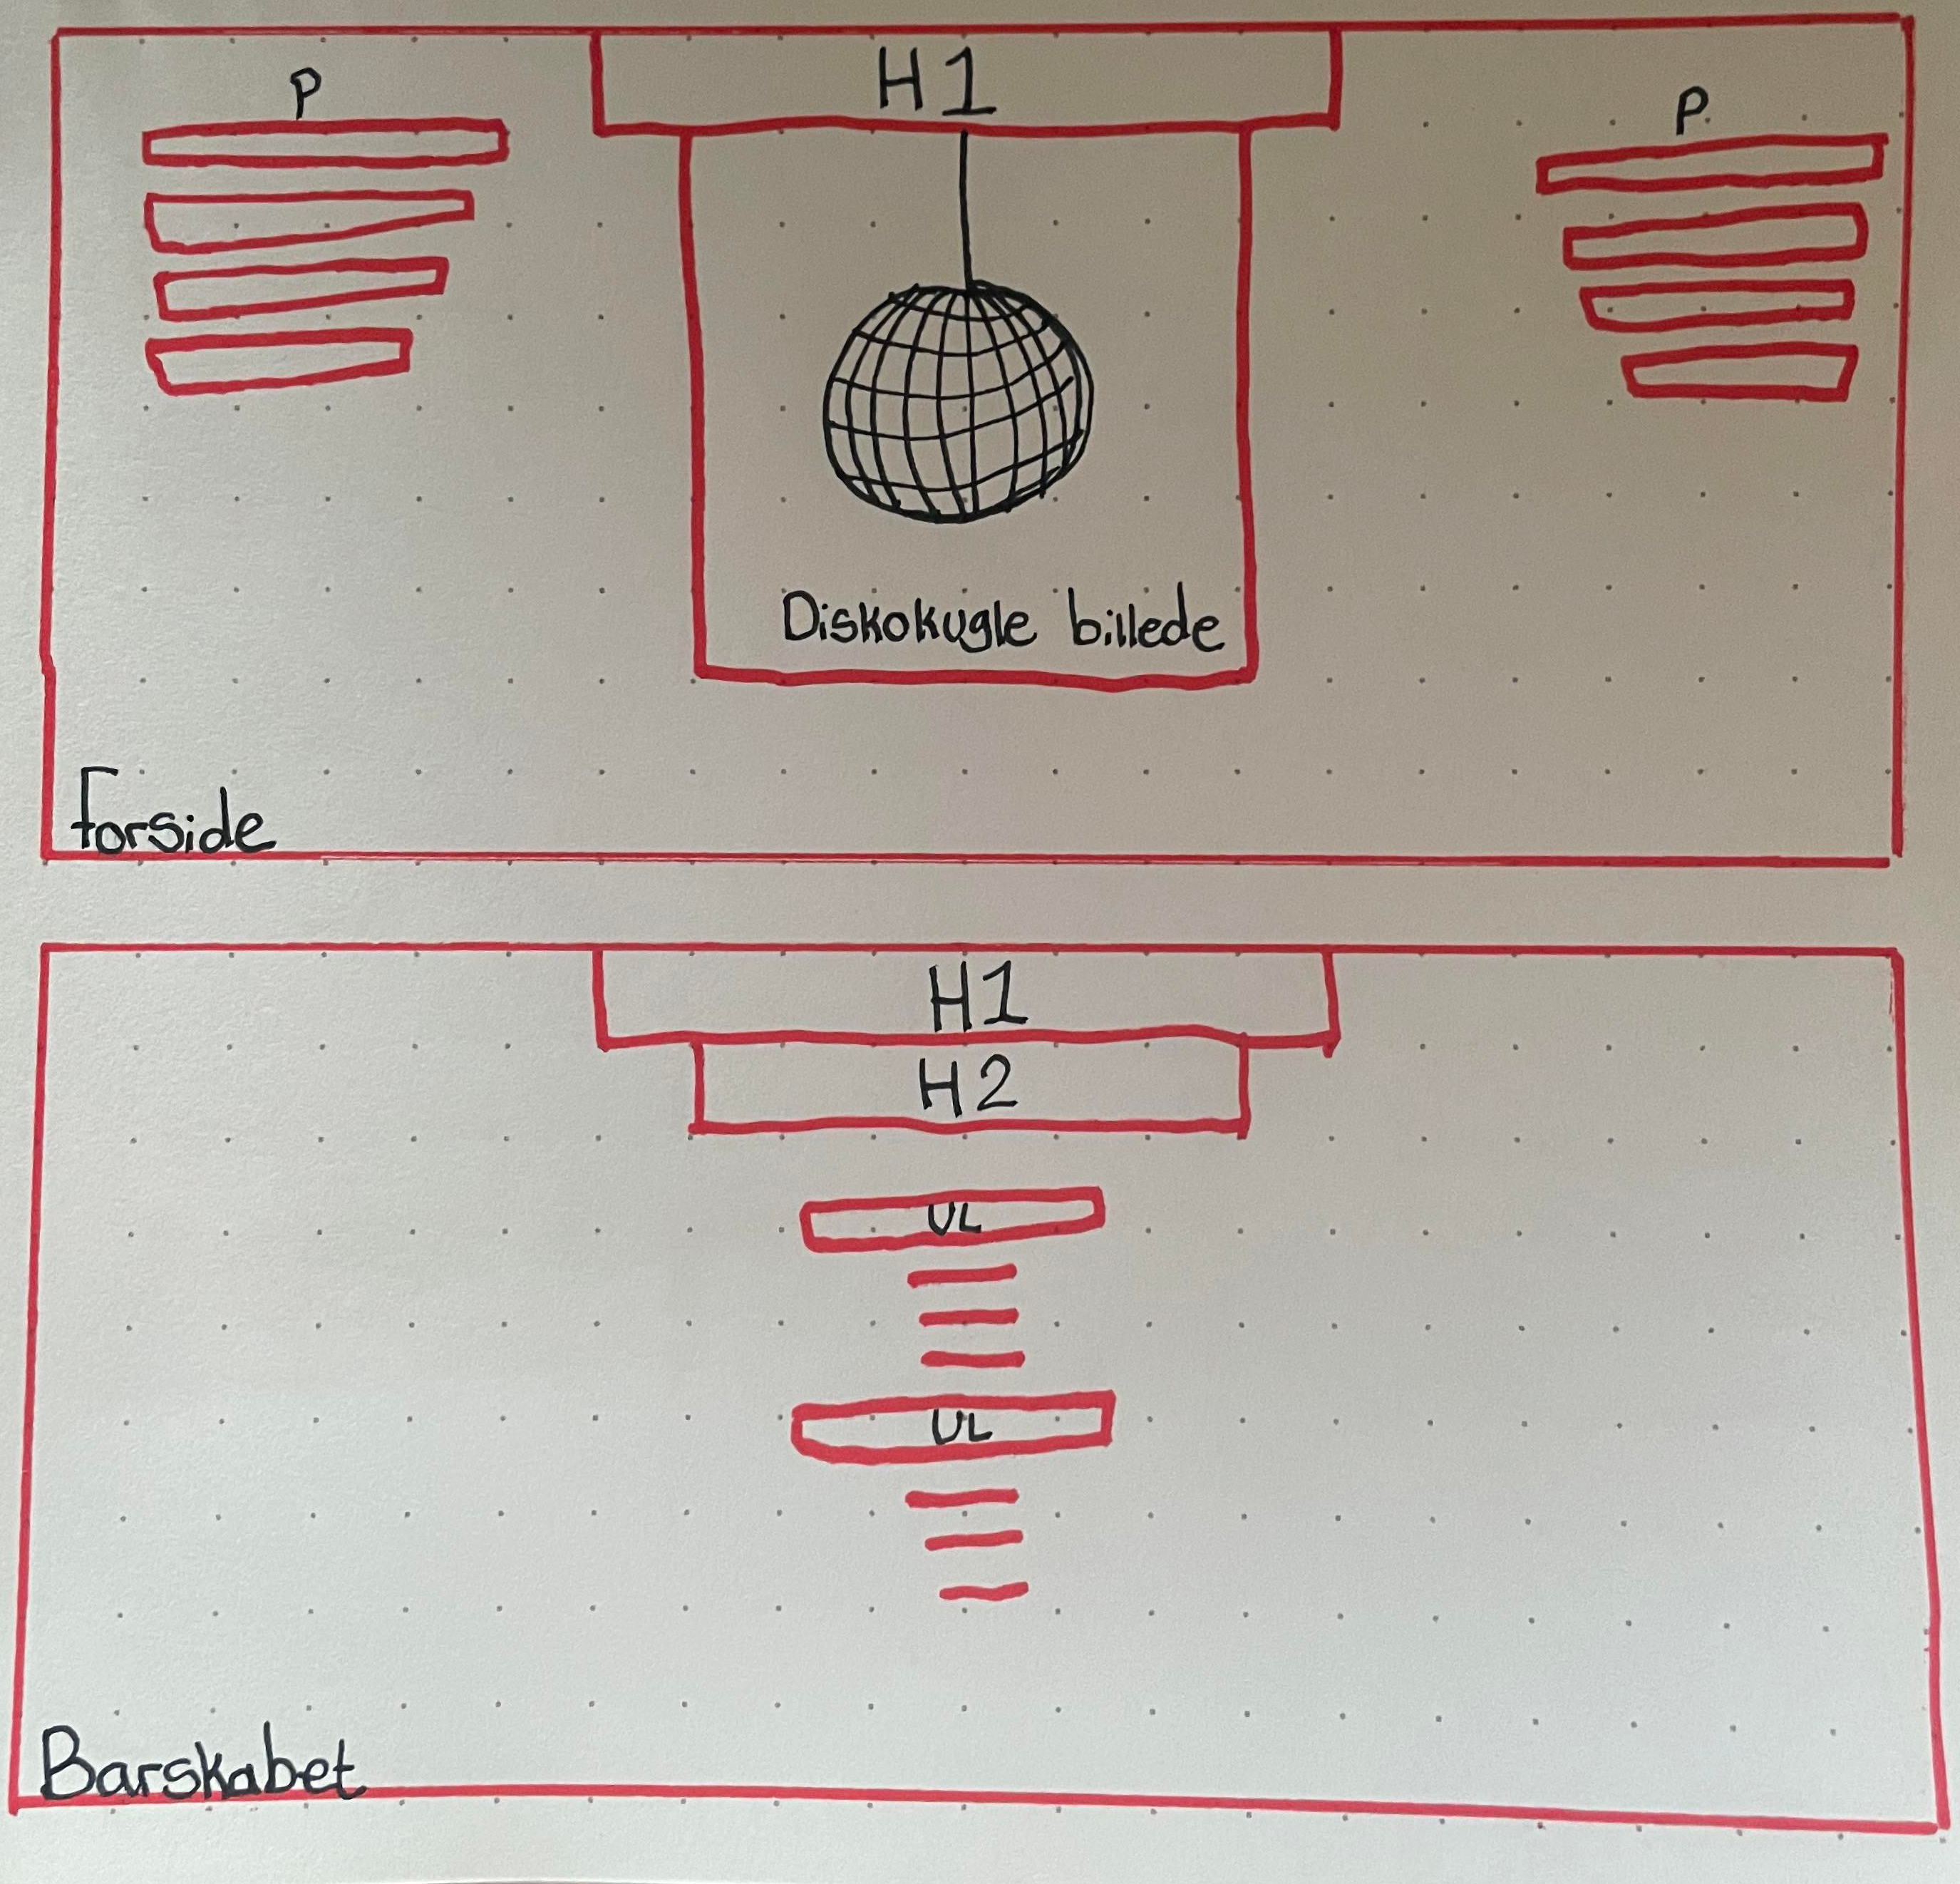 H1
P
P.
Diskokugle billede
forside
H1
H2
UL
UL
Barskabet